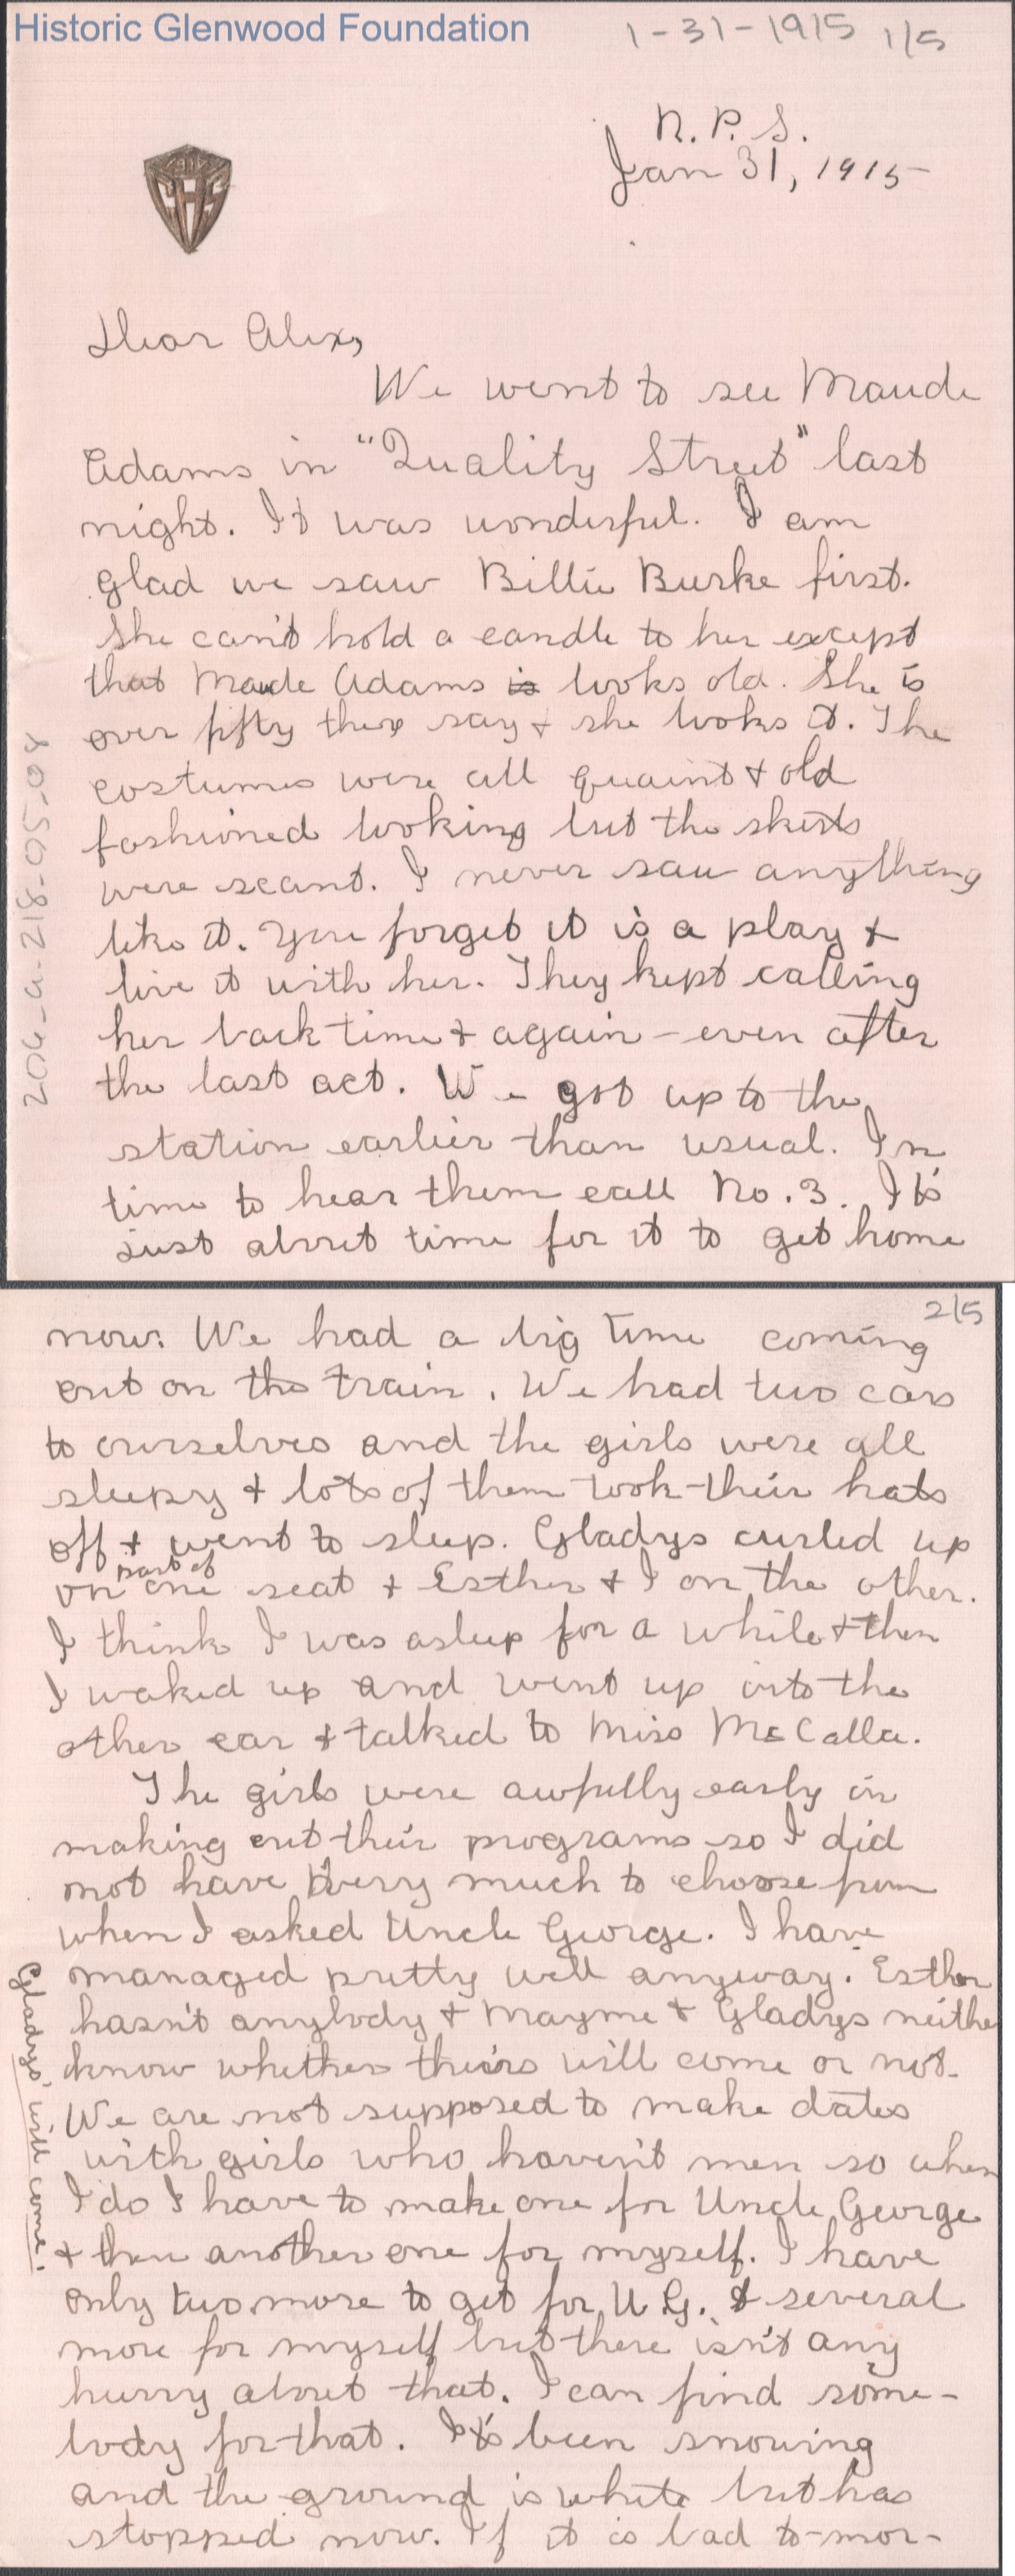 Historic Glenwood Foundation
1-31-1915 1/5
N. P. S.
Jan 31, 1915
Dear Alex,
We went to see Maude
Adams in "Quality Street" last
night. It was wonderful. I am
glad we saw Billie Burke first.
She can't hold a candle to her except
that Maude Adams is looks old. She is
over fifty they say & she looks it. The
costumes were all quaint & old
fashioned looking but the skirts
were scant. I never saw anything
like it. You forget it is a play &
live it with her. They kept calling
her back time & again - even after
the last act. We got up to the
station earlier than usual. In
time to hear them call No. 3. It's
just about time for it to get home
204-a-218-05-04
2/5
now. We had a big time coming
out on the train. We had two cars
to ourselves and the girls were all
sleepy & lots of them took their hats
off & went to sleep. Gladys curled up
on part of one seat & Esther & I on the other.
I think I was asleep for a while & then
I waked up and went up into the
other car & talked to Miss McCalla.
The girls were awfully early in
making out their programs so I did
not have very much to choose from
when I asked Uncle George. I have
managed pretty well anyway. Esther
hasn't anybody & Mayme & Gladys neither
know whether theirs will come or not.
We are not supposed to make dates
with girls who haven't men so when
I do I have to make one for Uncle George
& then another one for myself. I have
only two more to get for U. G. & several
more for myself but there isn't any
hurry about that. I can find some-
body for that. It's been snowing
and the ground is white but has
stopped now. If it is bad to-mor-
Gladys' will come!